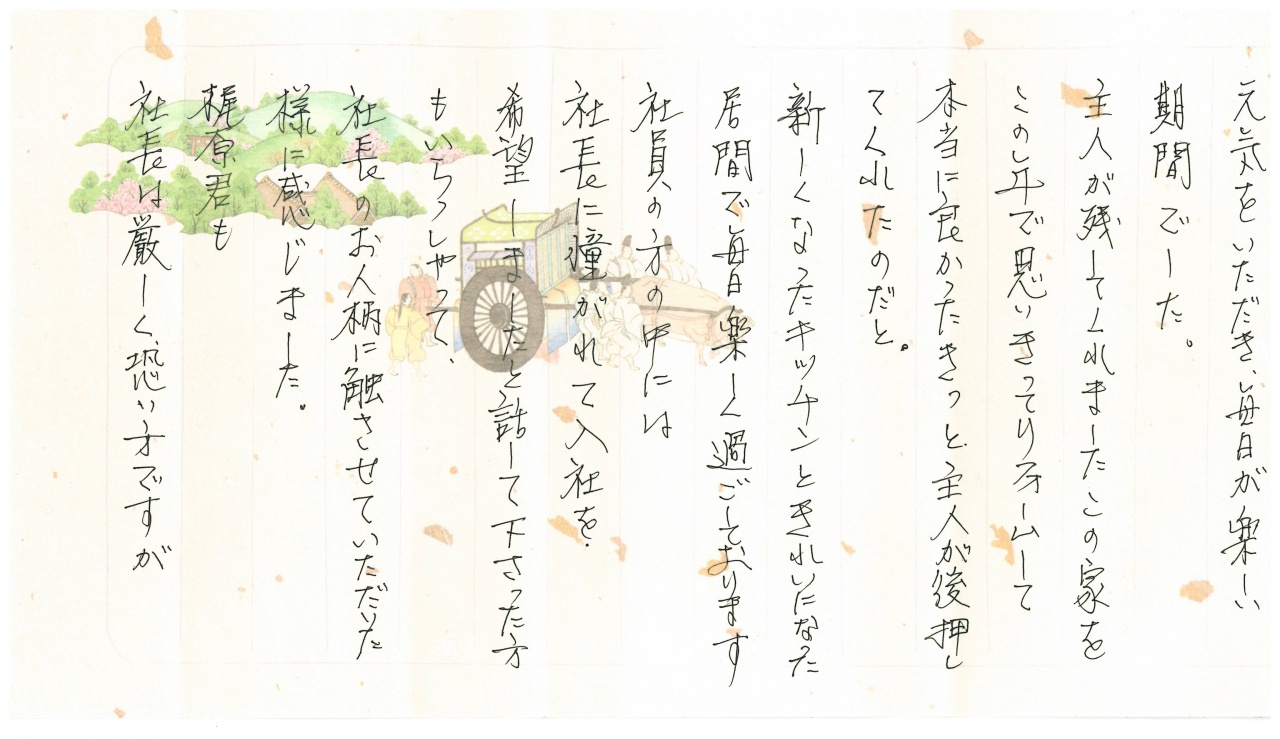 元気をいただき、毎日が楽しい
期間でした。
主人が残してくれましたこの家を
この年で思いきってリフォームして
本当に良かったきっと主人が後押し
てくれたのだと。
新しくなったキッチンときれいになった
居間で毎日楽しく過ごしております
社員の方の中には
社長に憧がれて入社を
希望しましたと話して下さった方
もいらっしゃって、
社長のお人柄に触させていただいた
様に感じました。
梶原君も
社長は厳しく、恐い方ですが